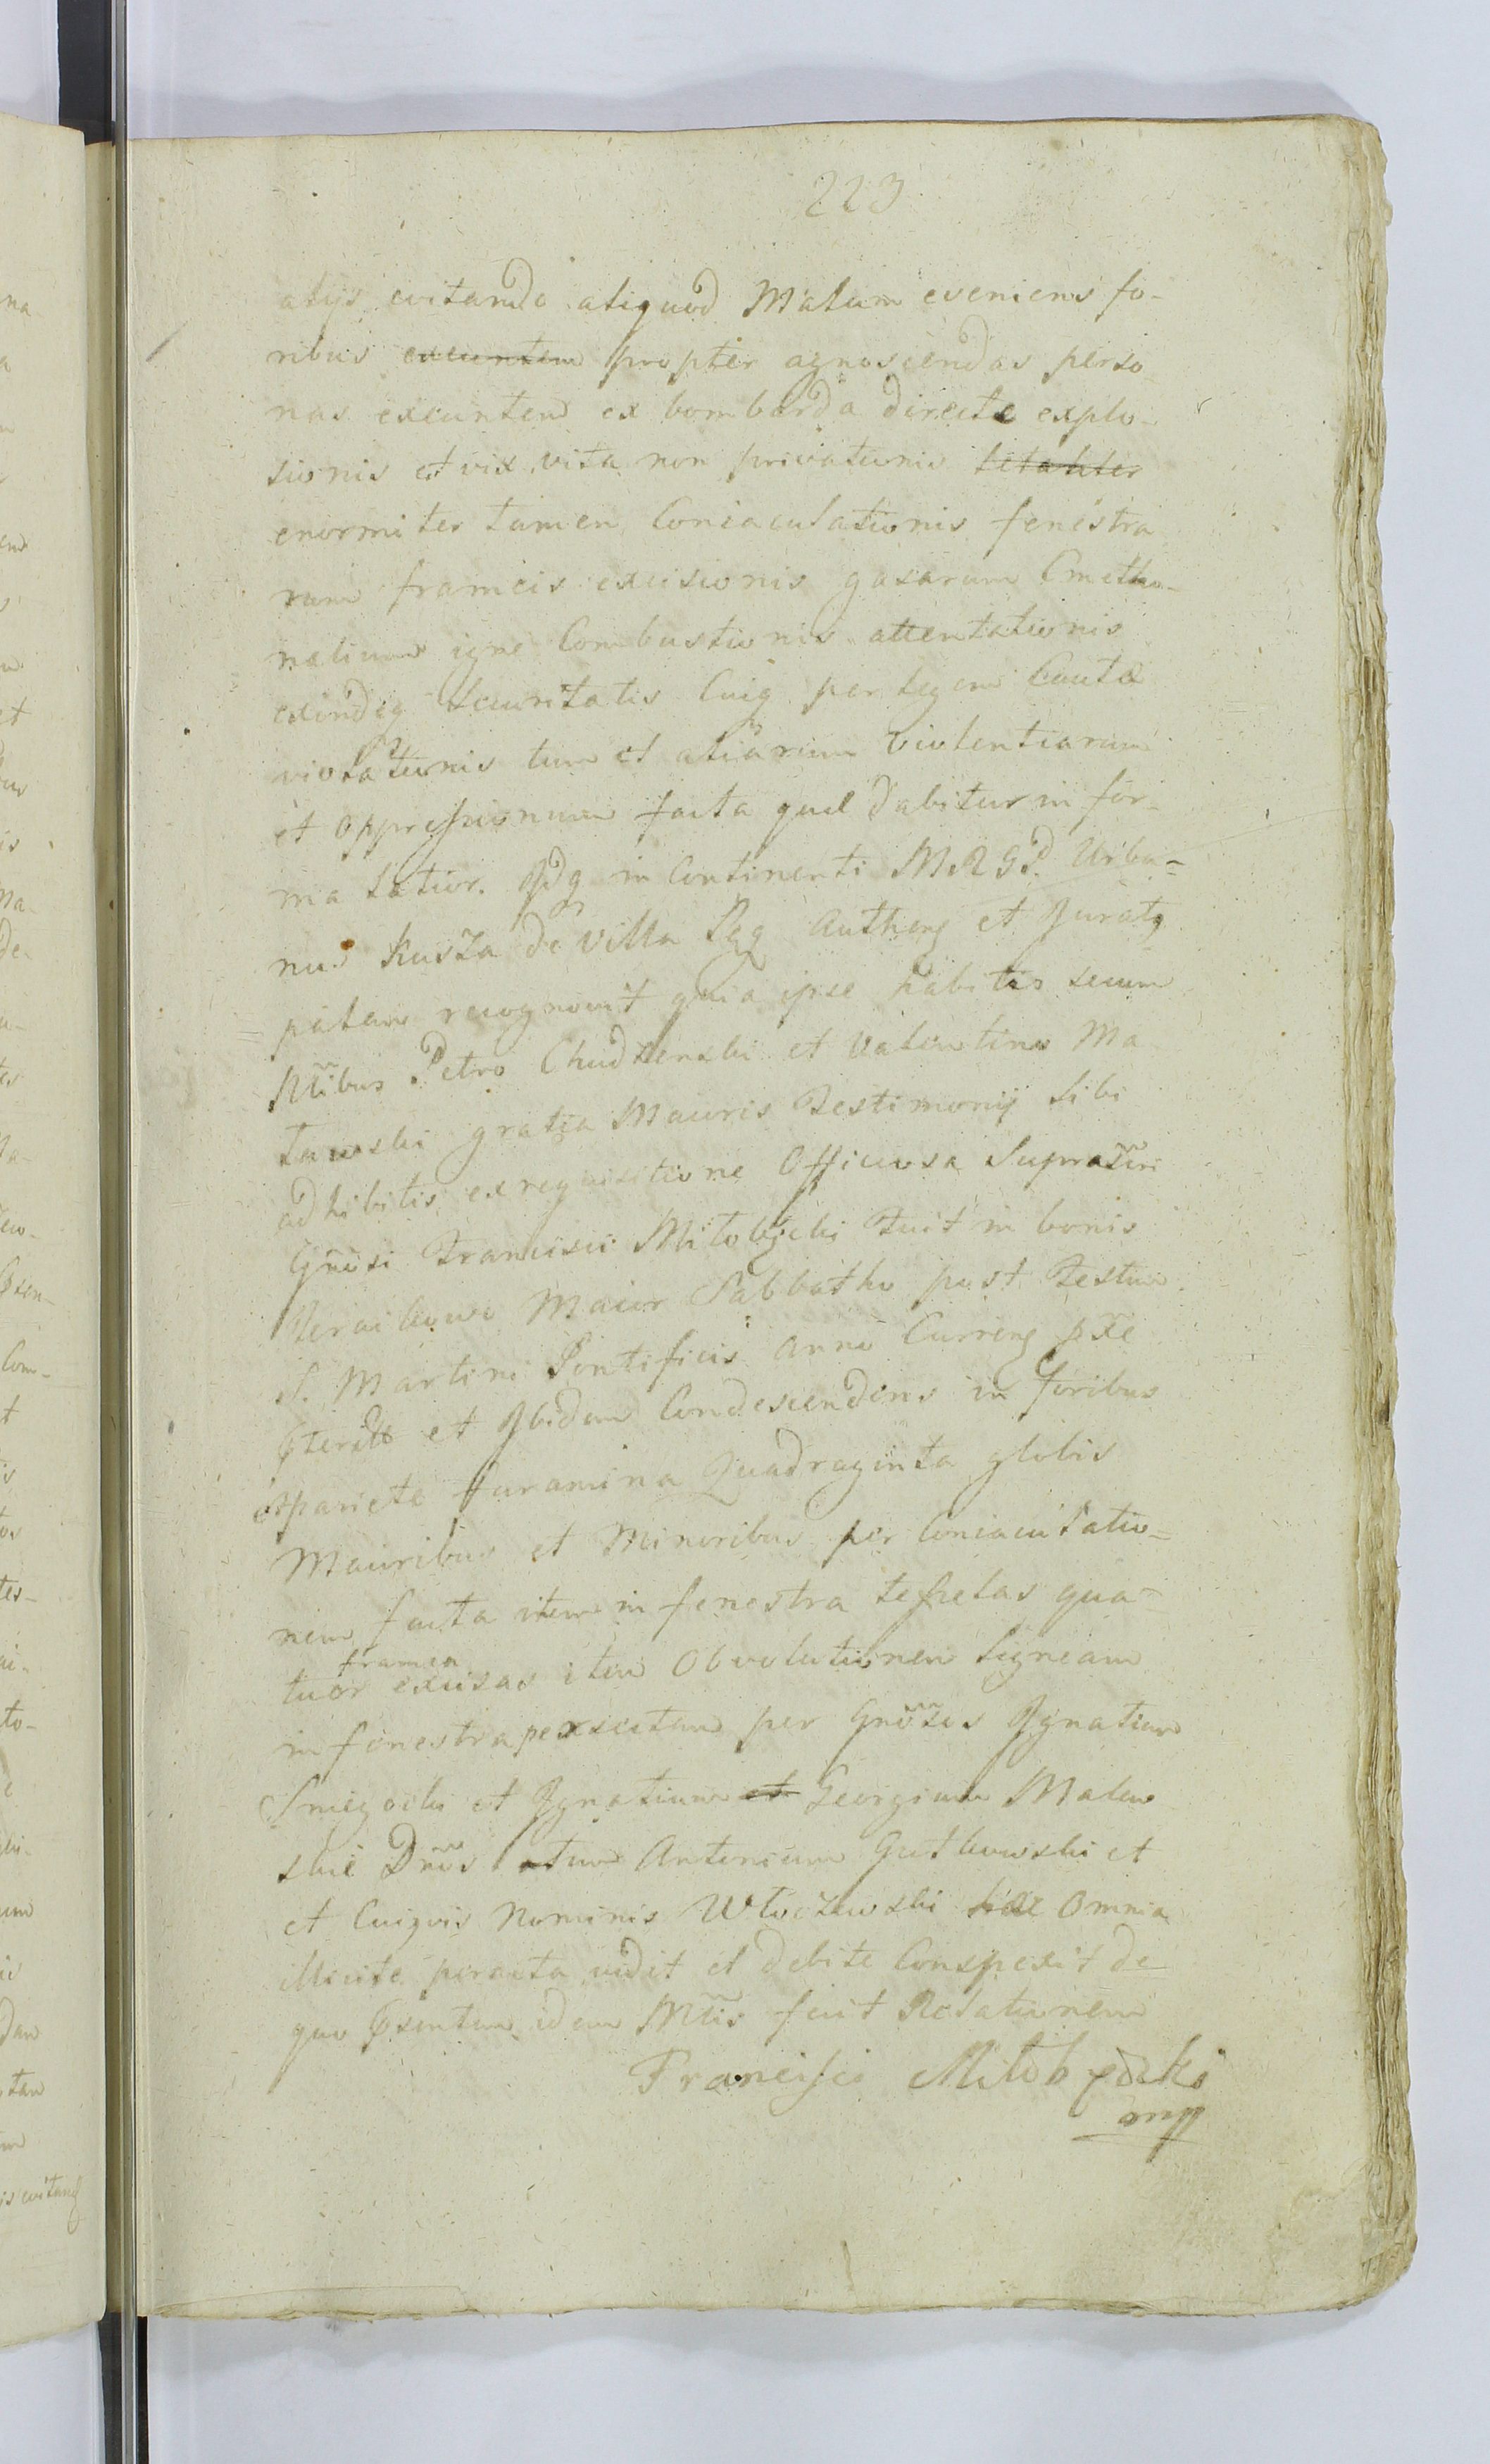 223
alijs evitando aliquod Malum eveniens fo-
ribus exeuntem propter agnoscendas perso
nas exeuntem ex bombarda directe explo-
sionis et vix vita non privationis letaliter
enormiter tamen Coniaculationis fenestra
rum frameis excisionis gazarum Cmetho-
nalium igne Combustionis attentationis
exindeq securitatis Cuiq per legem Cautæ
violationis tum et aliarum violentiarum
et oppressionum facta quæ dabitur in for-
ma latior. Idq in Continenti M R G P. Urba=
nus Kusza de villa Authenq et Juratq
palam recognovit quia ipse habitis secum
Nlibus Petro Chudzenski et Valentino Ma
towski gratia Maioris Testimonij sibi
adhibitis ex requisitione Officiosa Supraścri
Gñosi Francisci Miłobędzki Fuit in bonis
Maior Sabbatho post Festum
S. Martini Pontificis anni Curreng
et Ibidem Condescendens in foribus
et pariete foramina Quadraginta globis
Maioribus et Minoribus per Coniaculatio=
nem facta item in fenestra tesselas qua=
framea
tuor excisas item Obvolutionem ligneam
in fenestra perscisam per Gnõsos Ignatium
Smigocki et Ignatium et Georgium Malew
skie Dnõs tum Antonium Gutkowski et
et Cuiqvis Nominis Włoczewski hæc Omnia
illicite peracta vidit et debite Conspexit de
quo idem Mtis fecit Relationem
Francisci Miłobędzki
mp